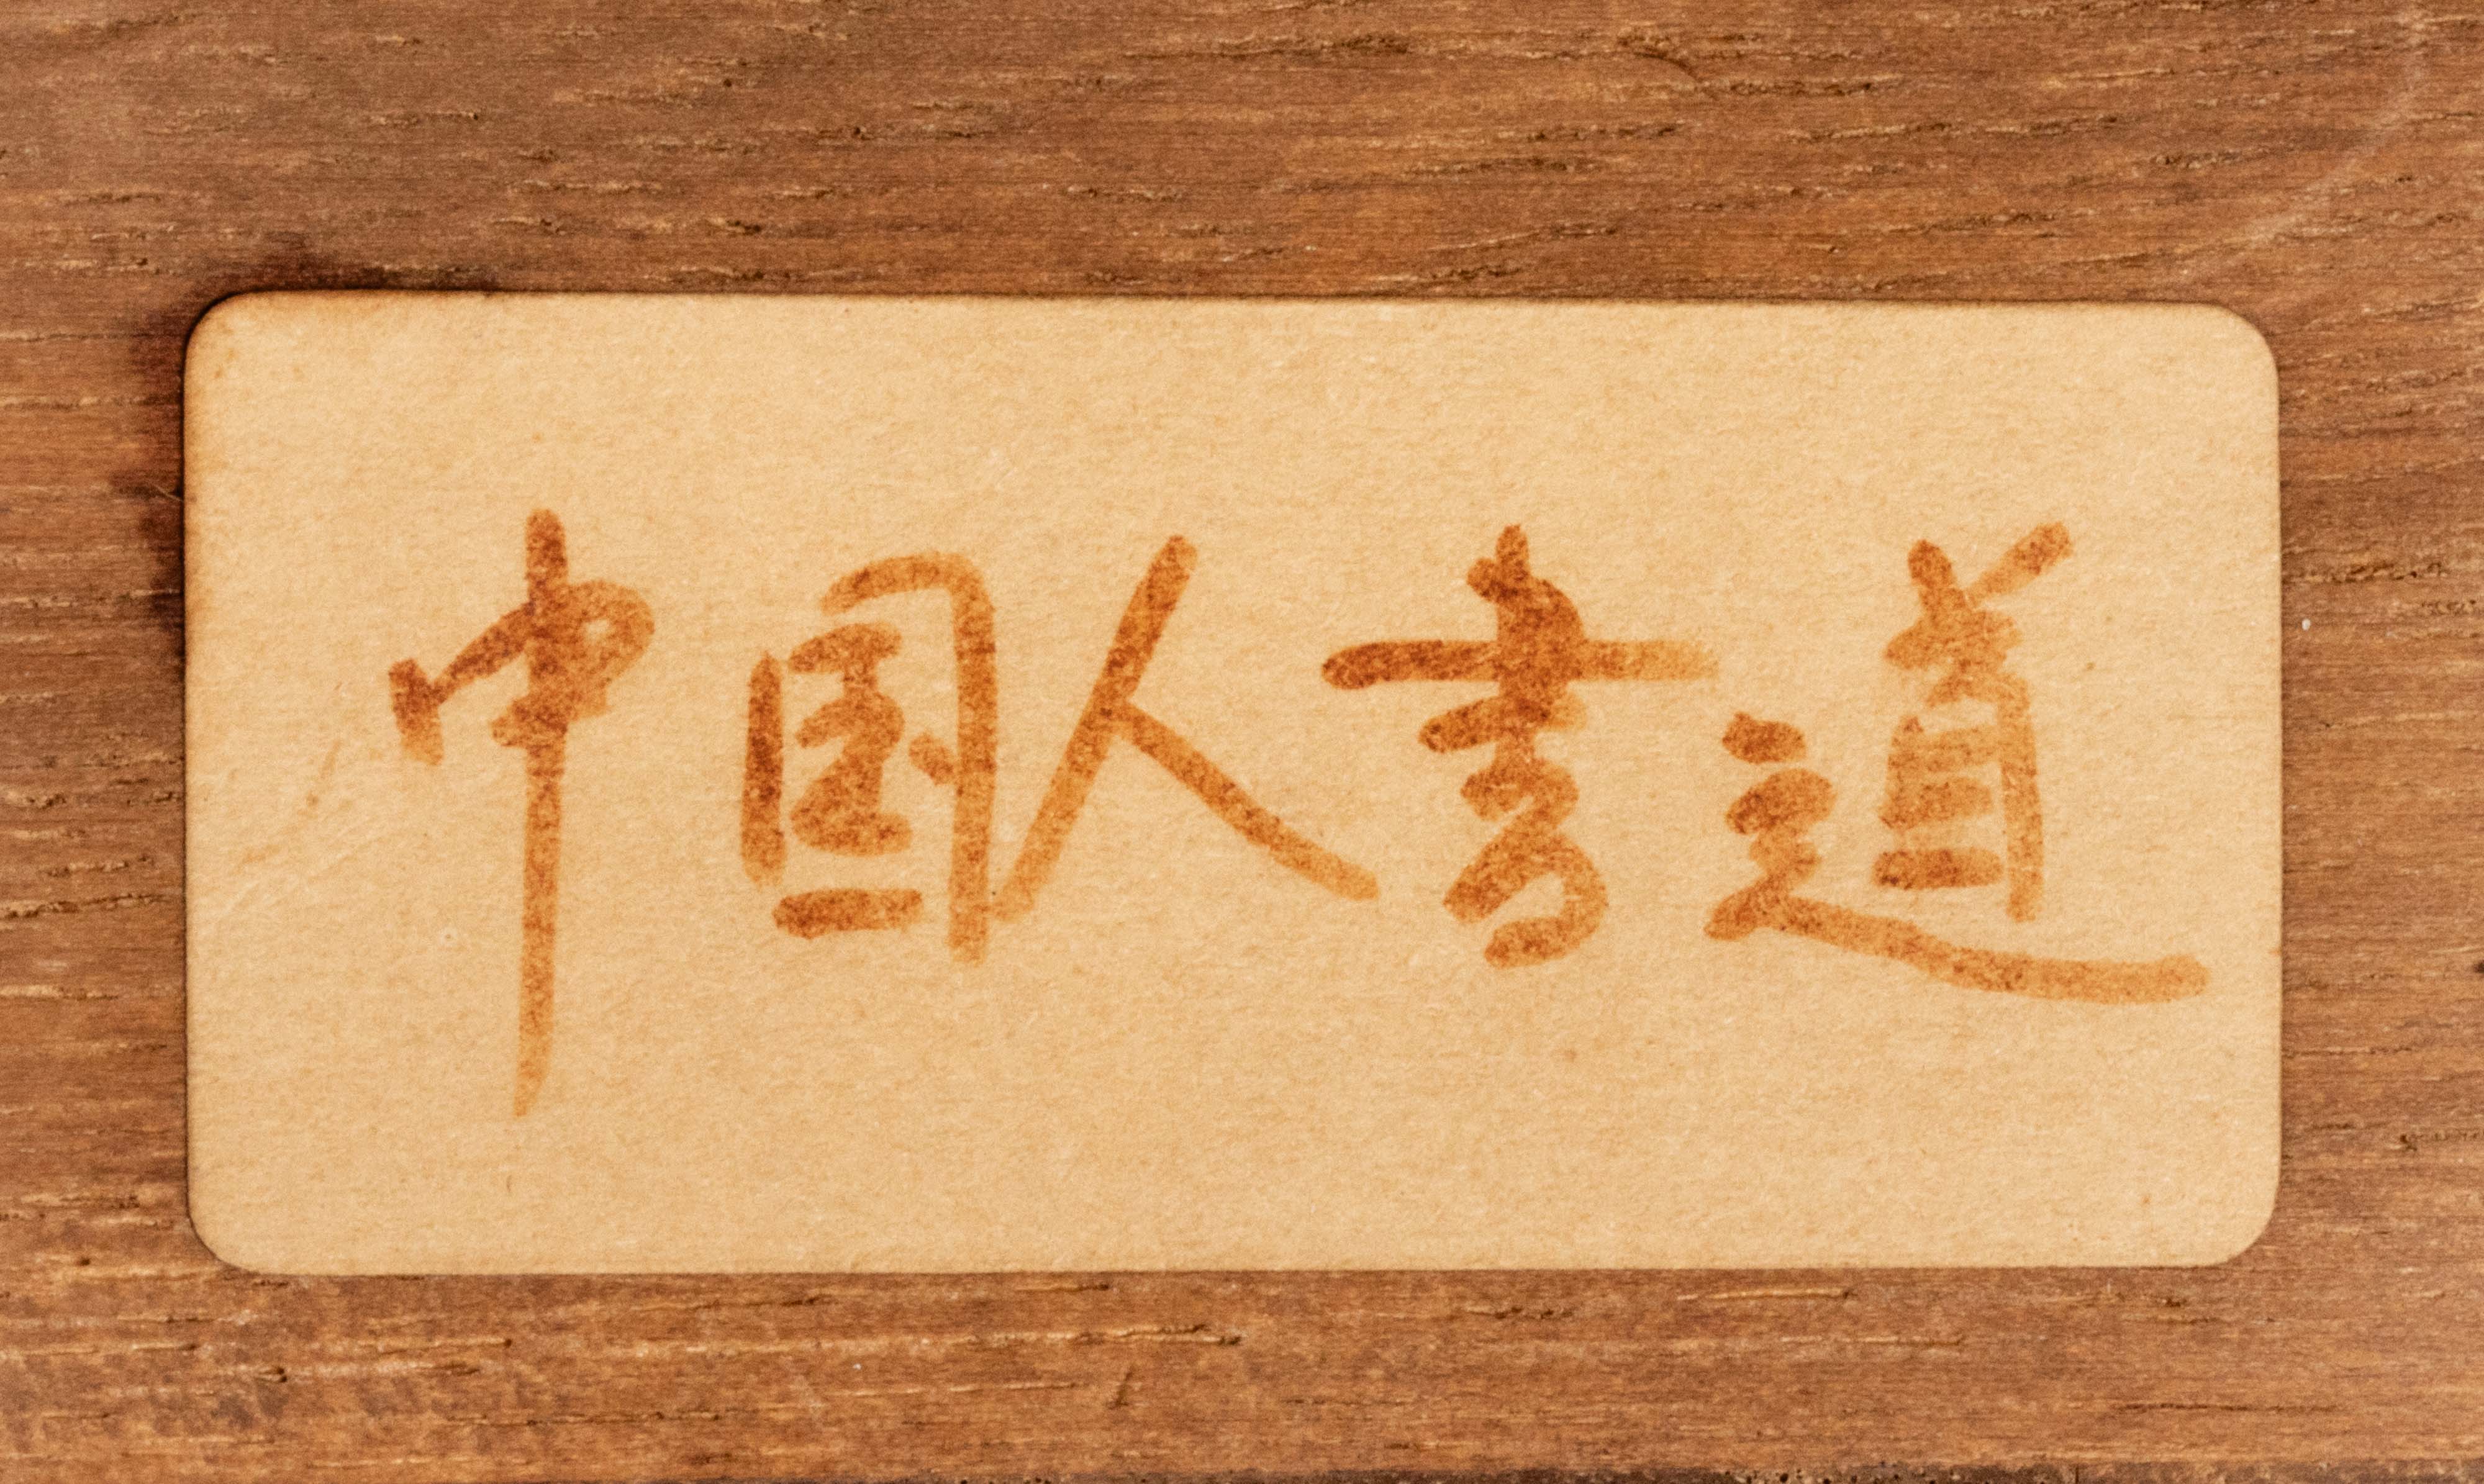 中国人書道